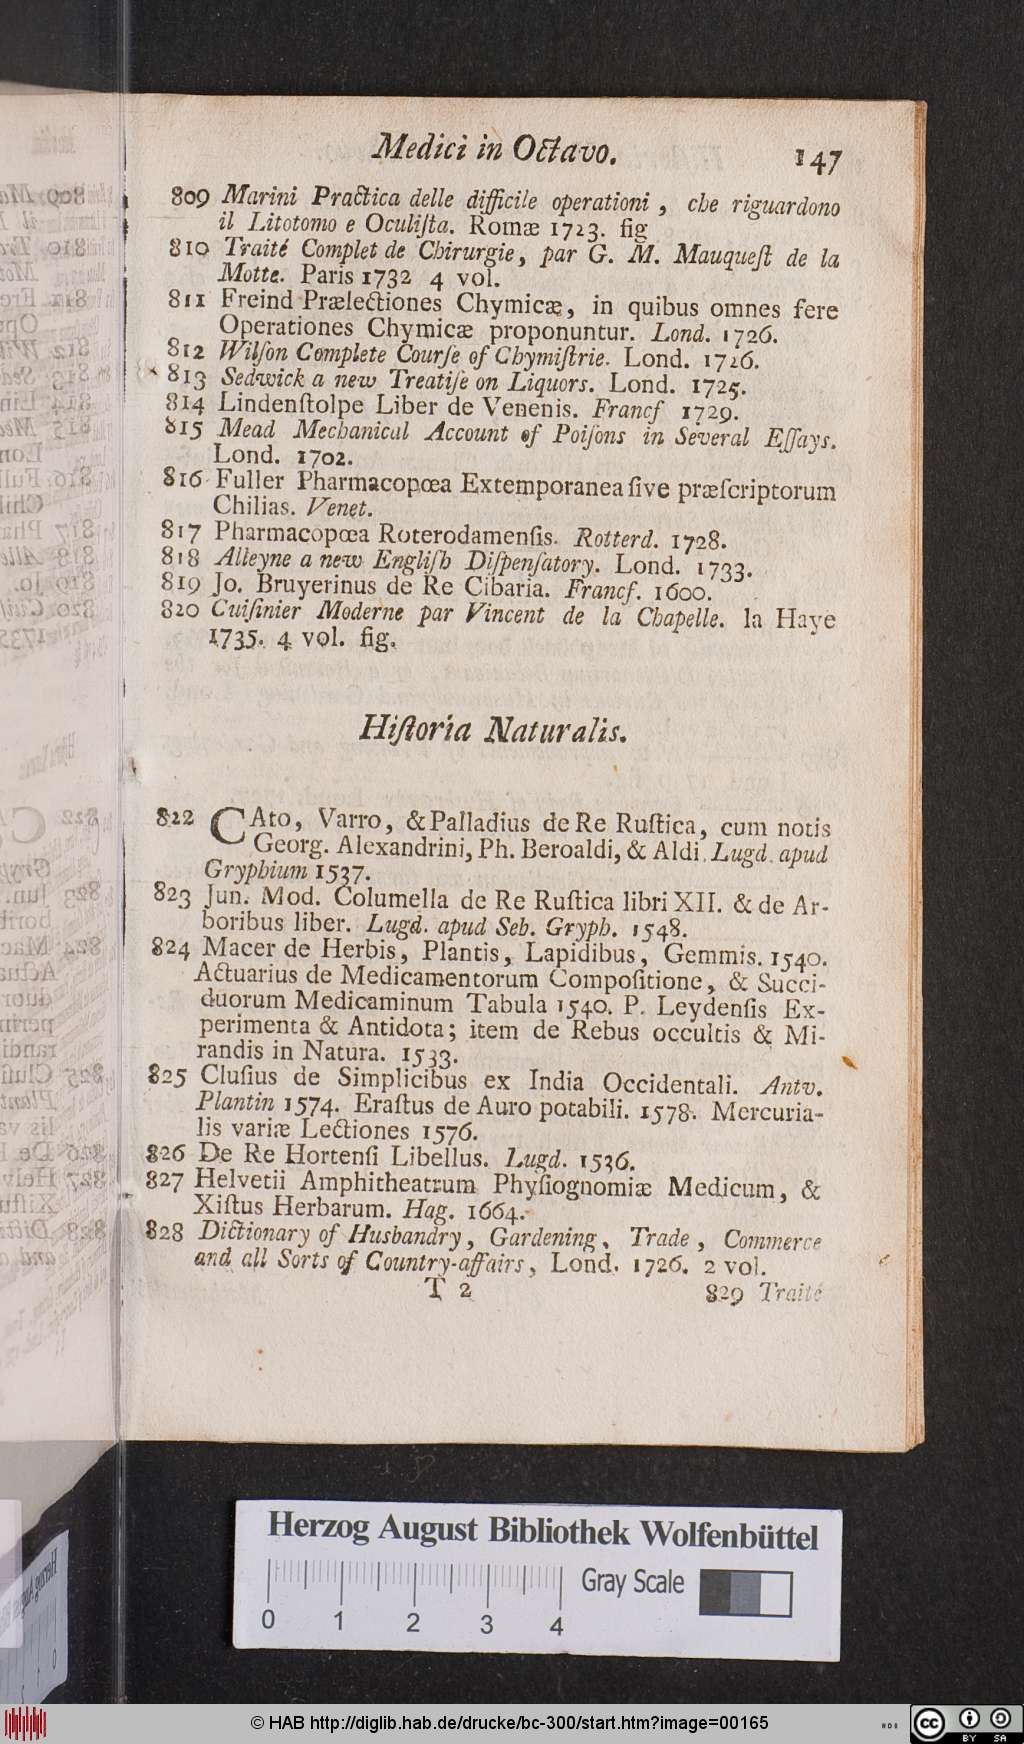 Medici in Octavo. 147
809 Marini Practica delle difficile operationi, che riguardono
il Litotomo e Oculiſta. Romæ 1723. fig
810 Traité Complet de Chirurgie, par G. M. Mauqueſt de la
Motte. Paris 1732 4 vol.
811 Freind Prælectiones Chymicæ, in quibus omnes fere
Operationes Chymicæ proponuntur. Lond. 1726.
812 Wilſon Complete Courſe of Chymiſtrie. Lond. 1726.
813 Sedwick a new Treatiſe on Liquors. Lond. 1725.
814 Lindenſtolpe Liber de Venenis. Francf 1729.
815 Mead Mechanical Account of Poiſons in Several Eſſays.
Lond. 1702.
816 Fuller Pharmacopœa Extemporanea ſive præſcriptorum
Chilias. Venet.
817 Pharmacopœa Roterodamenſis. Rotterd. 1728.
818 Alleyne a new Engliſh Diſpenſatory. Lond. 1733.
819 Jo. Bruyerinus de Re Cibaria. Francf. 1600.
820 Cuiſinier Moderne par Vincent de la Chapelle. la Haye
1735. 4 vol. fig.
Hiſtoria Naturalis.
822 CAto, Varro, & Palladius de Re Ruſtica, cum notis
Georg. Alexandrini, Ph. Beroaldi, & Aldi. Lugd. apud
Gryphium 1537.
823 Jun. Mod. Columella de Re Ruſtica libri XII. & de Ar-
boribus liber. Lugd. apud Seb. Gryph. 1548.
824 Macer de Herbis, Plantis, Lapidibus, Gemmis. 1540.
Actuarius de Medicamentorum Compoſitione, & Succi-
duorum Medicaminum Tabula 1540. P. Leydenſis Ex-
perimenta & Antidota; item de Rebus occultis & Mi-
randis in Natura. 1533.
825 Cluſius de Simplicibus ex India Occidentali. Antv.
Plantin 1574. Eraſtus de Auro potabili. 1578. Mercuria-
lis variæ Lectiones 1576.
826 De Re Hortenſi Libellus. Lugd. 1536.
827 Helvetii Amphitheatrum Phyſiognomiæ Medicum, &
Xiſtus Herbarum. Hag. 1664.
828 Dictionary of Husbandry, Gardening, Trade, Commerce
and all Sorts of Country-affairs, Lond. 1726. 2 vol.
T 2 829 Traité
Herzog August Bibliothek Wolfenbüttel
Gray Scale
0 1 2 3 4
© HAB http://diglib.hab.de/drucke/bc-300/start.htm?image=00165
cc BY SA